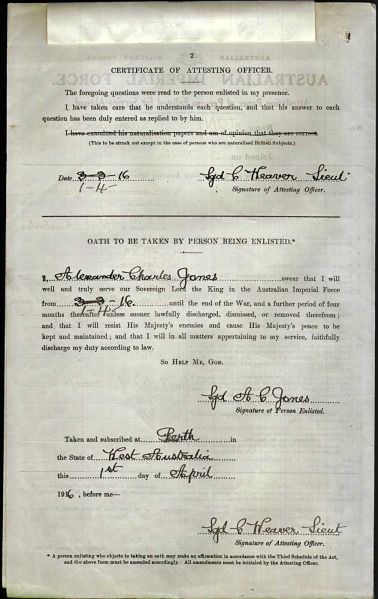 2
CERTIFICATE OF ATTESTING OFFICER.
The foregoing questions were read to the person enlisted in my presence.
I have taken care that he understands each question, and that his answer to each
question has been duly entered as replied to by him.
I have examined his naturalisation papers and am of opinion that they are correct.
(This to be struck out except in the case of persons who are naturalised British Subjects.)
Date 3-3-16 Sgd C Heaver Lieut
1-4- Signature of Attesting Officer.
OATH TO BE TAKEN BY PERSON BEING ENLISTED.*
I, Alexander Charles Jones swear that I will
well and truly serve our Sovereign Lord the King in the Australian Imperial Force
from 3-3-16 until the end of the War, and a further period of four
1-4-16
months thereafter unless sooner lawfully discharged, dismissed, or removed therefrom;
and that I will resist His Majesty's enemies and cause His Majesty's peace to be
kept and maintained; and that I will in all matters appertaining to my service, faithfully
discharge my duty according to law.
SO HELP ME, GOD.
Sgd A C Jones
Signature of Person Enlisted.
Taken and subscribed at Perth in
the State of West Australia
this 1st day of April
1916, before me—
Sgd C Heaver Lieut
Signature of Attesting Officer.
* A person enlisting who objects to taking an oath may make an affirmation in accordance with the Third Schedule of the Act,
and the above form must be amended accordingly. All amendments must be initialed by the Attesting Officer.